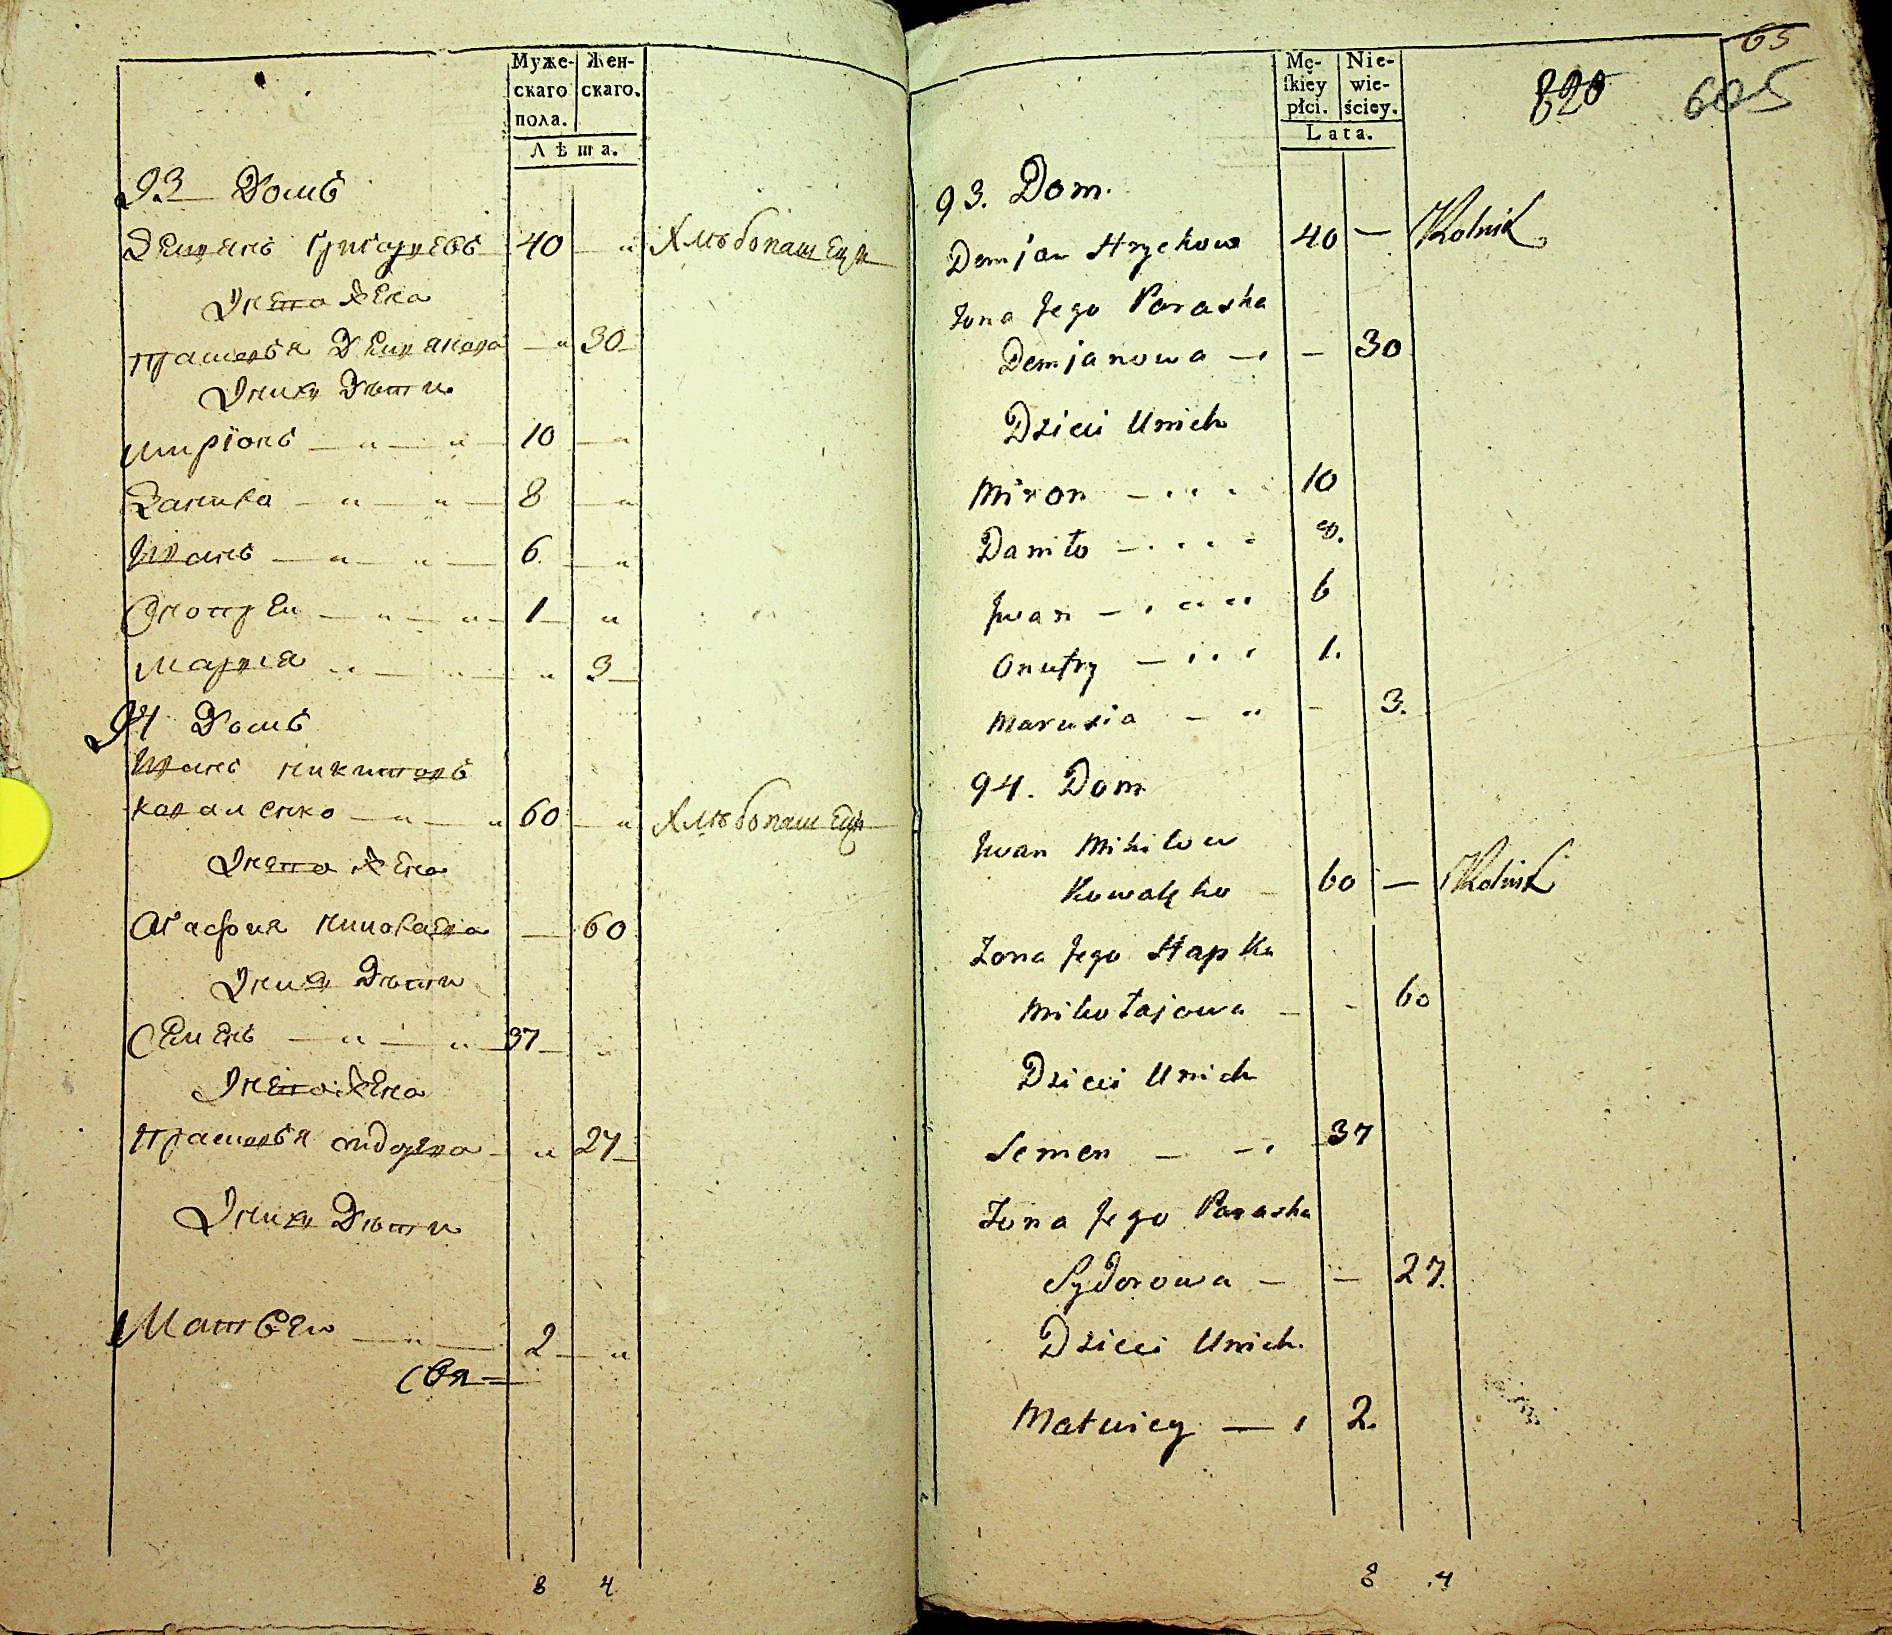 Муже- Жен-
скаго скаго.
пола.
Лѣта.
93 Домъ
Демянъ Григорьевъ 40 — " Хлѣбопашецъ
У него Жена
Прасковья Демянова — " 30
У них Дѣти
Миріонъ — " — " — 10 — "
Данила — " — " — 8 — "
Иванъ — " — " — 6 — "
Оноприй — " — " — 1 — "
Марья " — " — " 3
94 Домъ
Иванъ Никитовъ
Коваленко — " — " 60 — " Хлѣбопашецъ
У него Жена
Агафия Николаева — 60
У них Дѣти
Семенъ — " — " — 37 — "
У него Жена
Прасковья Сидорова — " 27
У них Дѣти
Матвей — " — 2 — "
8 4
65
820 605
Mę- Nie-
ſkiéy wie-
płci. ściey.
Lata.
93. Dom.
Demjan Hrychow 40 — Rolnik
Żona Jego Paraska
Demjanowa — — 30
Dzieci Unich
Miron — 10
Daniło — 8.
Jwan — 6
Onufry — 1.
Marusia — — 3.
94. Dom
Jwan Mikitow
Kowalęko — 60 — Rolnik
Żona Jego Hapka
Mikołajowa — — 60
Dzieci Unich
Semen — — 37
Żona Jego Paraska
Sydorowa — — 27.
Dzieci Unich.
Matwiey — 2.
8 4